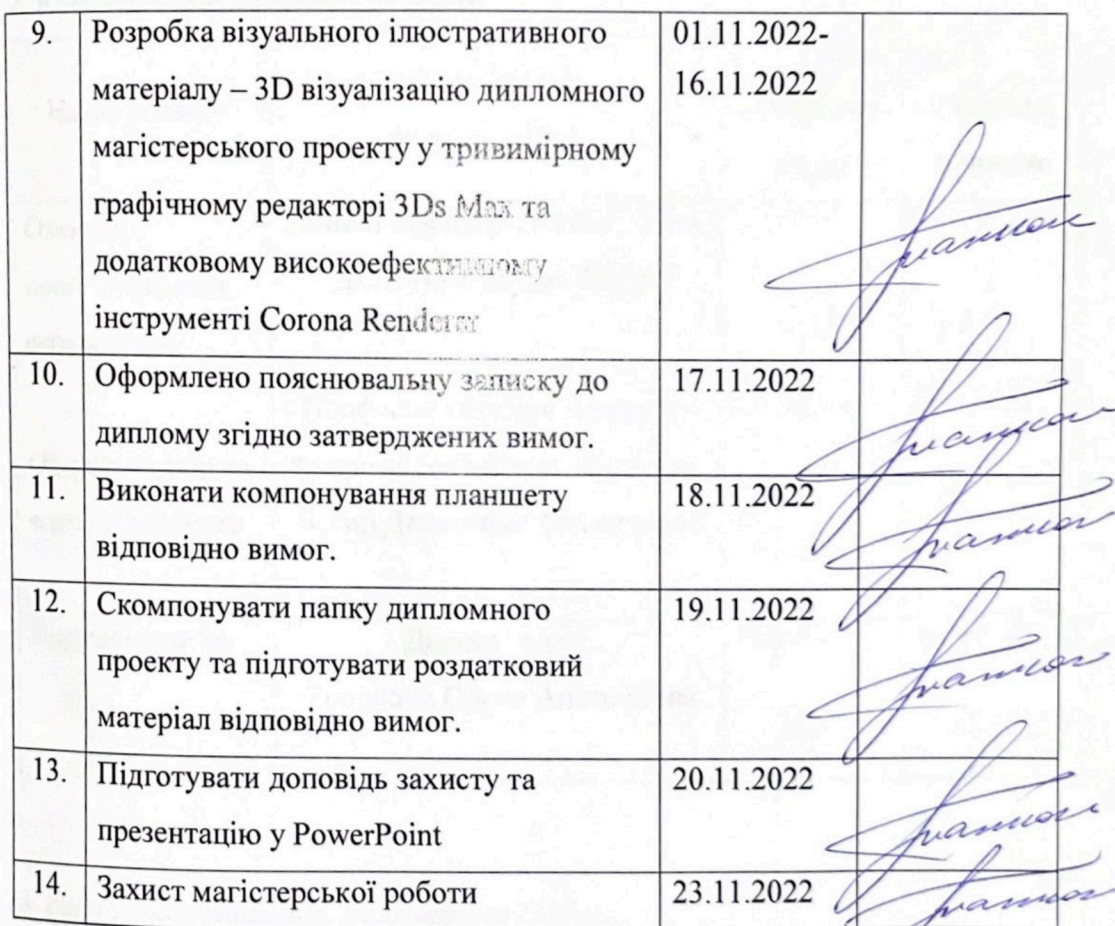 9. Розробка візуального ілюстративного 01.11.2022-
матеріалу – 3D візуалізацію дипломного 16.11.2022
магістерського проекту у тривимірному
графічному редакторі 3Ds Max та
додатковому високоефективному
інструменті Corona Renderer
10. Оформлено пояснювальну записку до 17.11.2022
диплому згідно затверджених вимог.
11. Виконати компонування планшету 18.11.2022
відповідно вимог.
12. Скомпонувати папку дипломного 19.11.2022
проекту та підготувати роздатковий
матеріал відповідно вимог.
13. Підготувати доповідь захисту та 20.11.2022
презентацію у PowerPoint
14. Захист магістерської роботи 23.11.2022